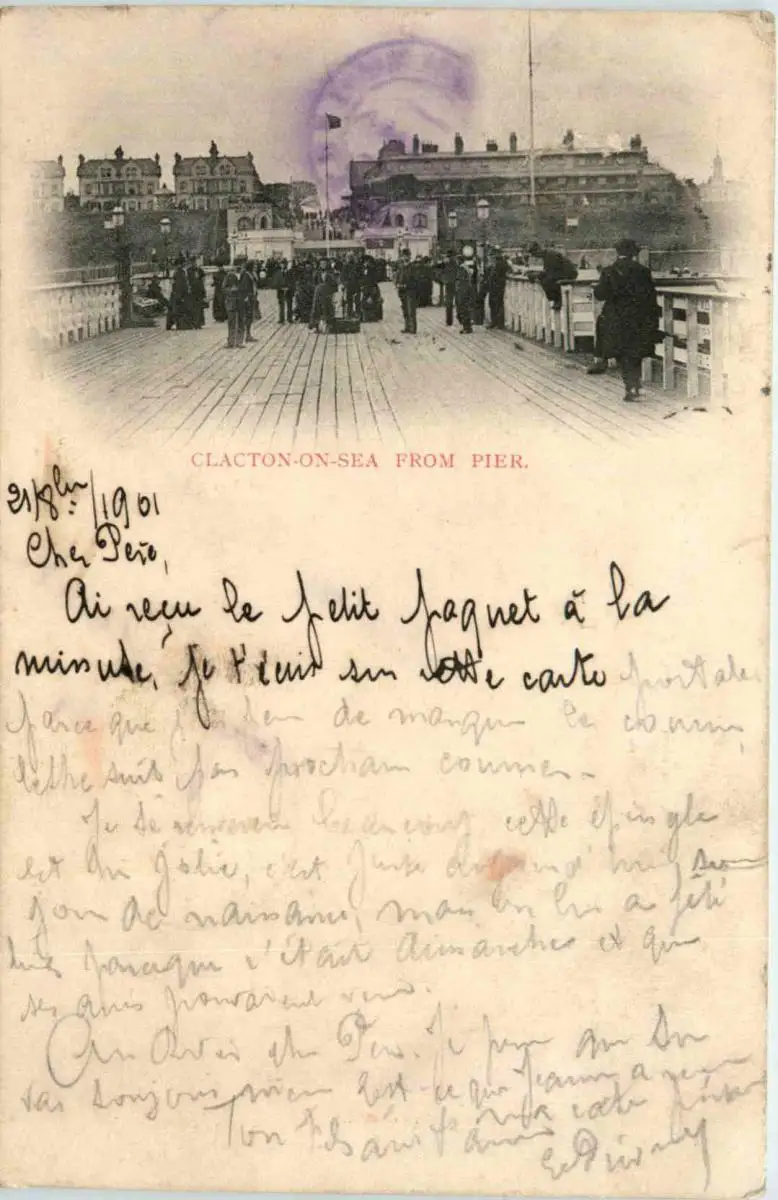 CLACTON-ON-SEA FROM PIER.
21/8bre/1901
Cher Père,
Ai reçu le petit paquet à la
minute, je t'écris sur cette carte postale
parce que j'ai peur de manquer le courrier,
lettre suit par prochain courrier.
Je te remercie beaucoup cette épingle
est très jolie, c'est juste aujourd'hui son
jour de naissance, mais on l'a fêté
hier parceque c'était dimanche et que
ses amis pouvaient venir.
Au Revoir cher Père. Je pense que tu
vas toujours bien Est-ce que a reçu
Ton